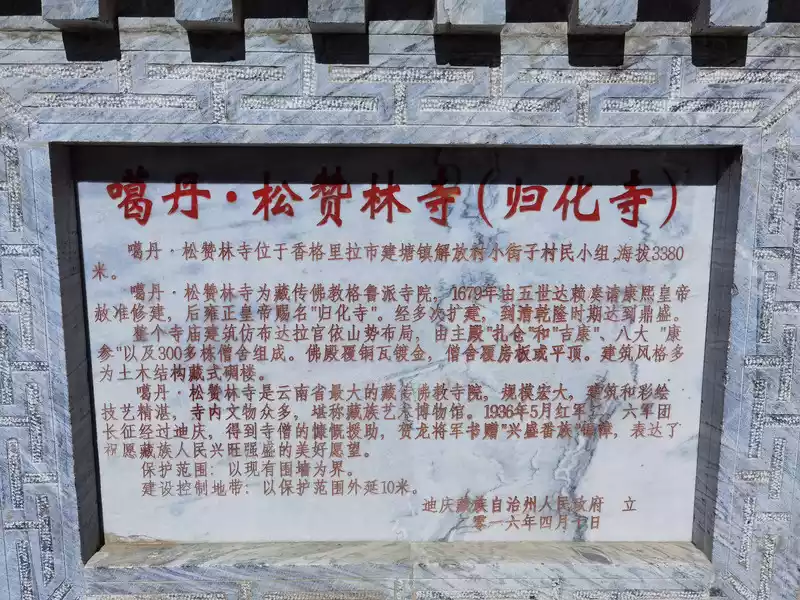 噶丹·松赞林寺(归化寺)
噶丹·松赞林寺位于香格里拉市建塘镇解放村小街子村民小组,海拔3380
米。
噶丹·松赞林寺为藏传佛教格鲁派寺院,1679年由五世达赖奏请康熙皇帝
赦准修建,后雍正皇帝赐名"归化寺"。经多次扩建,到清乾隆时期达到鼎盛。
整个寺庙建筑仿布达拉宫依山势布局,由主殿"扎仓"和"吉康"、八大"康
参"以及300多栋僧舍组成。佛殿覆铜瓦镀金,僧舍覆房板或平顶。建筑风格多
为土木结构藏式碉楼。
噶丹·松赞林寺是云南省最大的藏传佛教寺院,规模宏大,建筑和彩绘
技艺精湛,寺内文物众多,堪称藏族艺术博物馆。1936年5月红军 六军团
长征经过迪庆,得到寺僧的慷慨援助,贺龙将军书赠"兴盛番族"锦幛,表达了
祝愿藏族人民兴旺强盛的美好愿望。
保护范围:以现有围墙为界。
建设控制地带:以保护范围外延10米。
迪庆藏族自治州人民政府 立
二零一六年四月 日